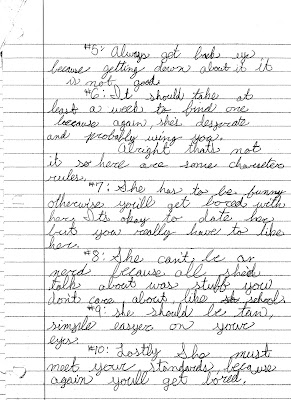 #5: Always get back up
because getting down about it it
is not good
#6: It should take at
least a week to find one
because again, she's desperate
and probably using you.
Alright thats not
it so here are some character
rules.
#7: She has to be funny
otherwise you'll get bored with
her. It's okay to date her
but you really have to like
her.
#8: She cant be a
nerd because all shed
talk about was stuff you
dont care about like school.
#9: she should be tan,
simple easyer on your
eyes.
#10: Lastly She must
meet your standards, because
again you'll get bored.